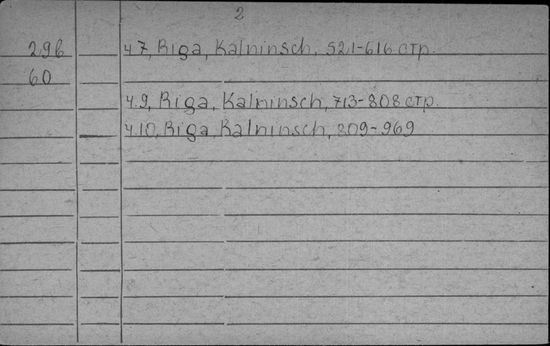 2
29б ч.7, Riga, Kalninsch, 521-616 стр.
60
ч.9, Riga, Kalninsch, 713-808 стр.
ч.10, Riga, Kalninsch, 809-969